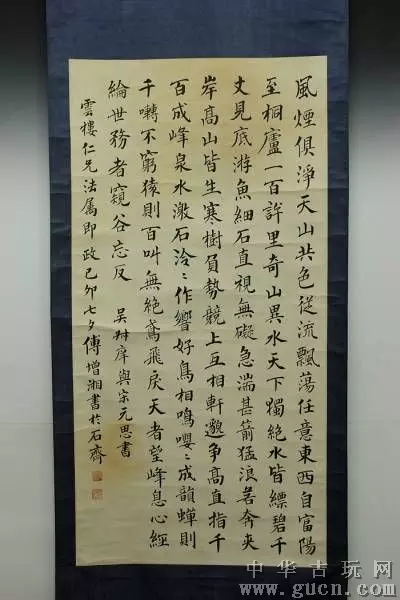 風煙俱淨天山共色從流飄蕩任意東西自富陽
至桐廬一百許里奇山異水天下獨絶水皆縹碧千
丈見底游魚細石直視無礙急湍甚箭猛浪若奔夾
岸高山皆生寒樹負勢競上互相軒邈爭高直指千
百成峰泉水激石泠〻作響好鳥相鳴嚶〻成韻蟬則
千囀不窮猿則百叫無絶鳶飛戾天者望峰息心經
綸世務者窺谷忘反 吳叔庠與宋元思書
雲樓仁兄法屬即政己卯七夕傅增湘書於石齋
中华古玩网
www.gucn.com